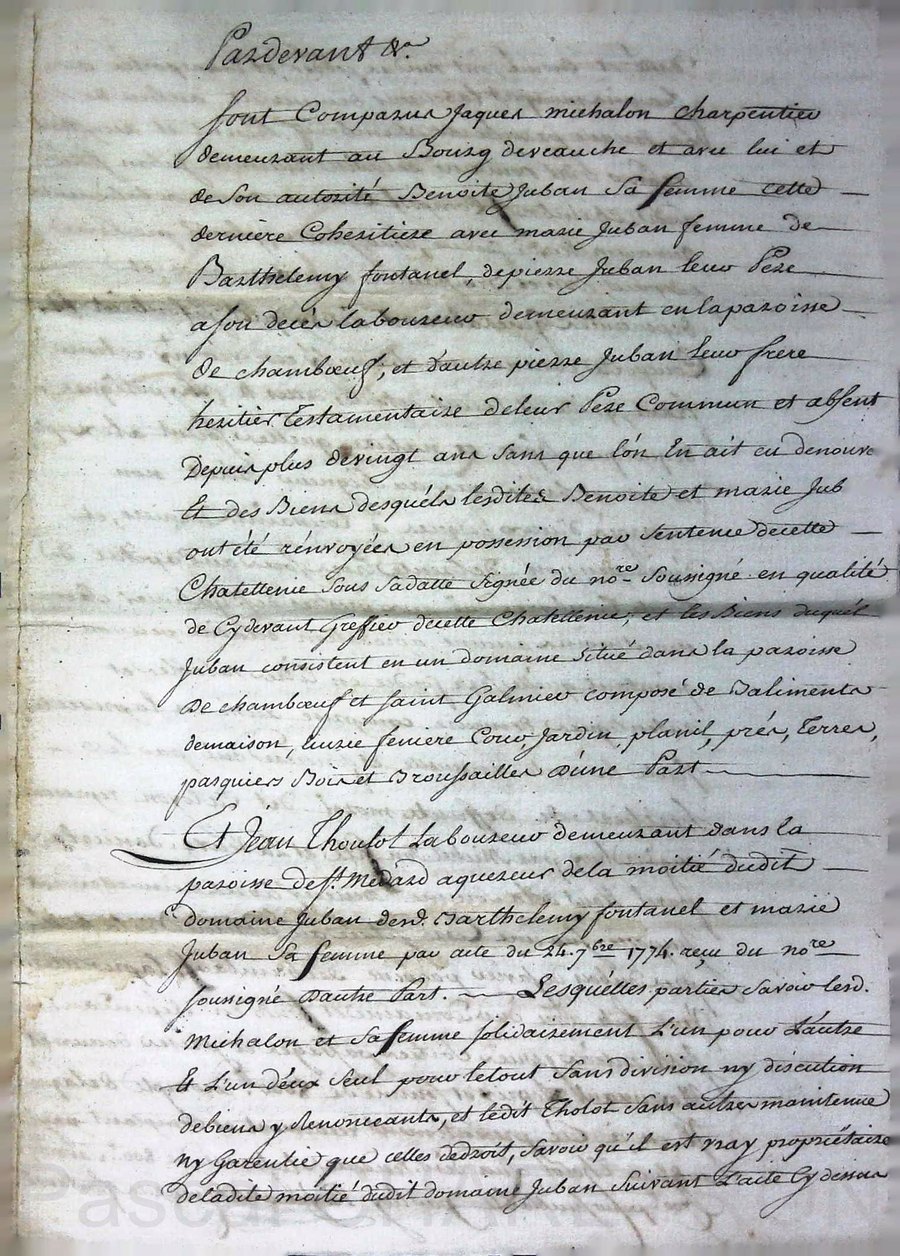 Pardevant &a
sont Comparus Jaques michalon charpentier
demeurant au Bourg deveauche et avec lui et
de son autorité Benoite Juban sa femme cette
dernière Coheritiere avec marie Juban femme de
Barthelemy fontanel, depierre Juban leur Pere
a son decès laboureur demeurant en la paroisse
de chambœuf, et d'autre pierre Juban leur frere
heritier Testamentaire deleur Pere Commun et absent
Depuis plus devingt ans sans que lon En ait eu denouve
Et des Biens desquéls lesdites Benoite et marie Jub
ont été rénvoyées en possession par sentence decette
Chatellenie sous sadatte signée du nore soussigné en qualité
de Cydevant Greffier decette Chatellenie, et les Biens duquél
Juban consistent en un domaine situé dans la paroisse
De chambœuf et saint Galmier composé de Batiments
demaison, Ecurie feniere Cour, Jardin, planil, prés, Terres,
pasquiers Bois et Broussailles D'une Part
Et Jean Thoulot Laboureur demeurant dans la
paroisse de st. Medard aquereur dela moitié dudit
domaine Juban desd. Barthelemy fontanel et marie
Juban sa femme par acte du 24. 7bre 1774. reçu du nore
soussigné d'autre Part. Lesquélles parties savoir lesd.
Michalon et sa femme solidairement L'un pour L'autre
Et L'un d'éux seul pour letout sans division ny discution
debiens y Renonceants, et ledit Tholot sans autres maintenue
ny Garentie que celles dedroit, savoir qu'il est vray propriétaire
deladite moitié dudit domaine Juban suivant L'acte Cydessus
Pascal CHARETON